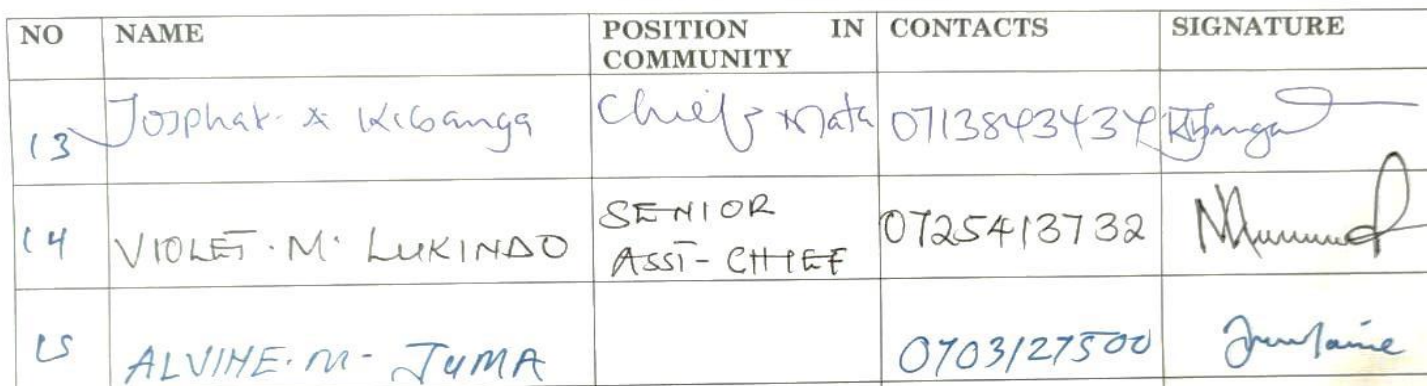 NO NAME POSITION IN COMMUNITY CONTACTS SIGNATURE
13 Josphat Kibanga Chief Mata 0713843434 Kibanga
14 VIOLET. M. LUKINDO SENIOR ASST-CHIEF 0725413732
15 ALVINE. M- JUMA 0703127500